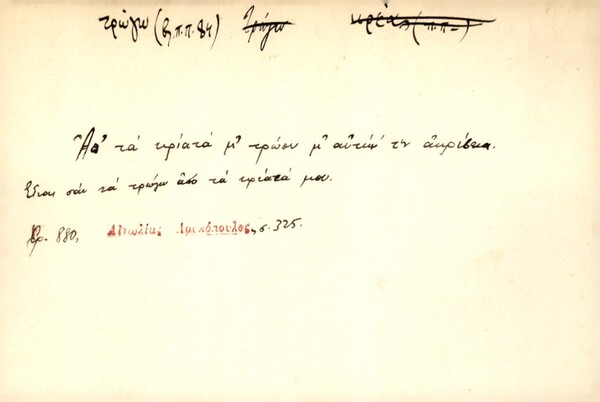 τρώγω (β, π.π. 84) τρώγω κρέας (π.π. –)
Ἀπ' τὰ κριάτά μ' τρώου μ' αὐτήν τὴν ἀκρίβεια.
Εἶναι σὰν νὰ τρώγω ἀπὸ τὰ κρέατά μου.
Ἀρ. 880, Αἰτωλίας Λουκόπουλος, σ. 325.